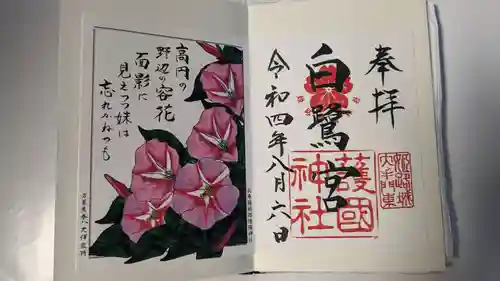 奉拝
白鷺宮
令和四年八月六日
護國
神社
姫路城
大手門東
高円の
野辺の容花
面影に
見えつつ妹は
忘れかねつも